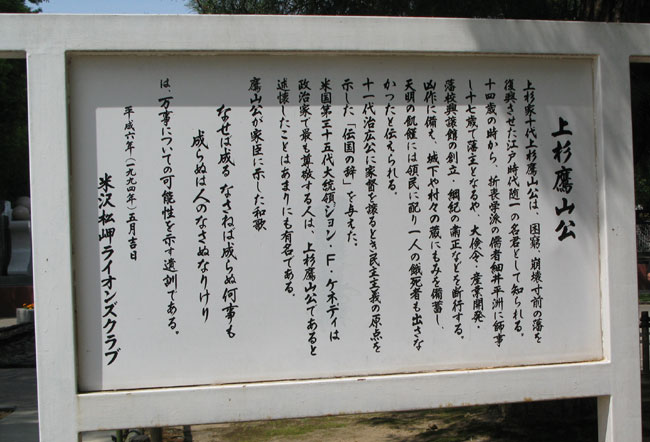 上杉鷹山公
上杉家十代上杉鷹山公は、困窮、崩壊寸前の藩を
復興させた江戸時代随一の名君として知られる。
十四歳の時から、折衷学派の儒者細井平洲に師事
し十七歳で藩主となるや、大倹令・産業開発・
藩校興譲館の創立・綱紀の粛正などを断行する。
凶作に備え、城下や村々の蔵にもみを備蓄し、
天明の飢饉には領民に配り一人の餓死者も出さな
かったと伝えられる。
十一代治広公に家督を譲るとき民主主義の原点を
示した「伝国の辞」を与えた。
米国第三十五代大統領ジョン・F・ケネディは
政治家で最も尊敬する人は、上杉鷹山公であると
述懐したことはあまりにも有名である。
鷹山公が家臣に示した和歌
なせは成る なさねは成らぬ 何事も
成らぬは人の なさぬなりけり
は、万事についての可能性を示す遺訓である。
平成六年(一九九四年)五月吉日
米沢松岬ライオンズクラブ